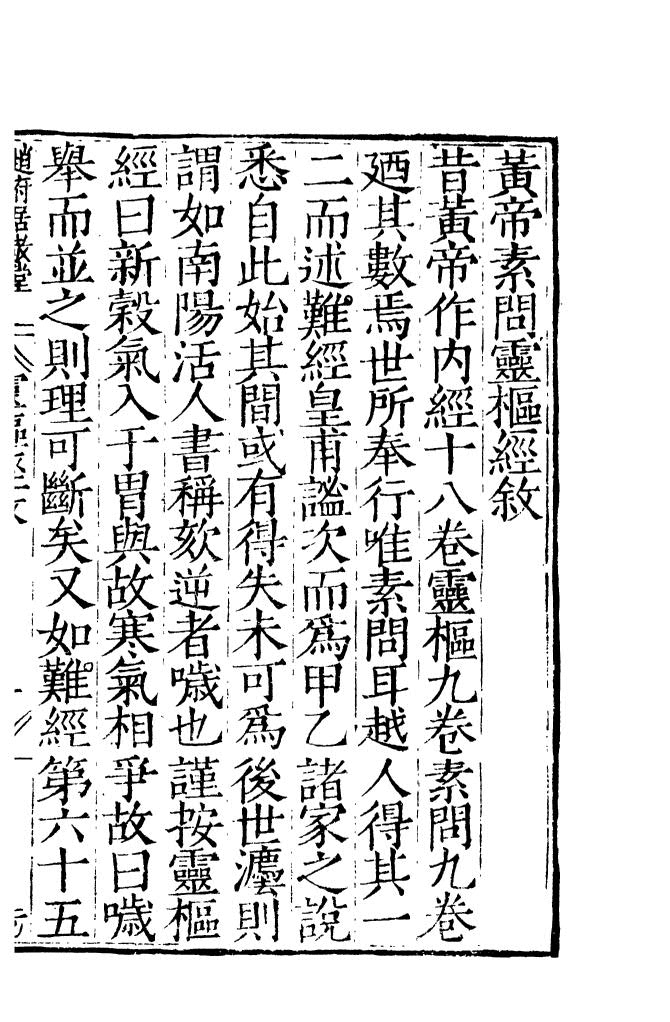 黃帝素問靈樞經敘
昔黃帝作內經十八卷靈樞九卷素問九卷
廼其數焉世所奉行唯素問耳越人得其一
二而述難經皇甫謐次而為甲乙諸家之說
悉自此始其間或有得失未可為後世灋則
謂如南陽活人書稱欬逆者噦也謹按靈樞
經曰新穀氣入于胃與故寒氣相爭故曰噦
舉而並之則理可斷矣又如難經第六十五
趙府居敬堂